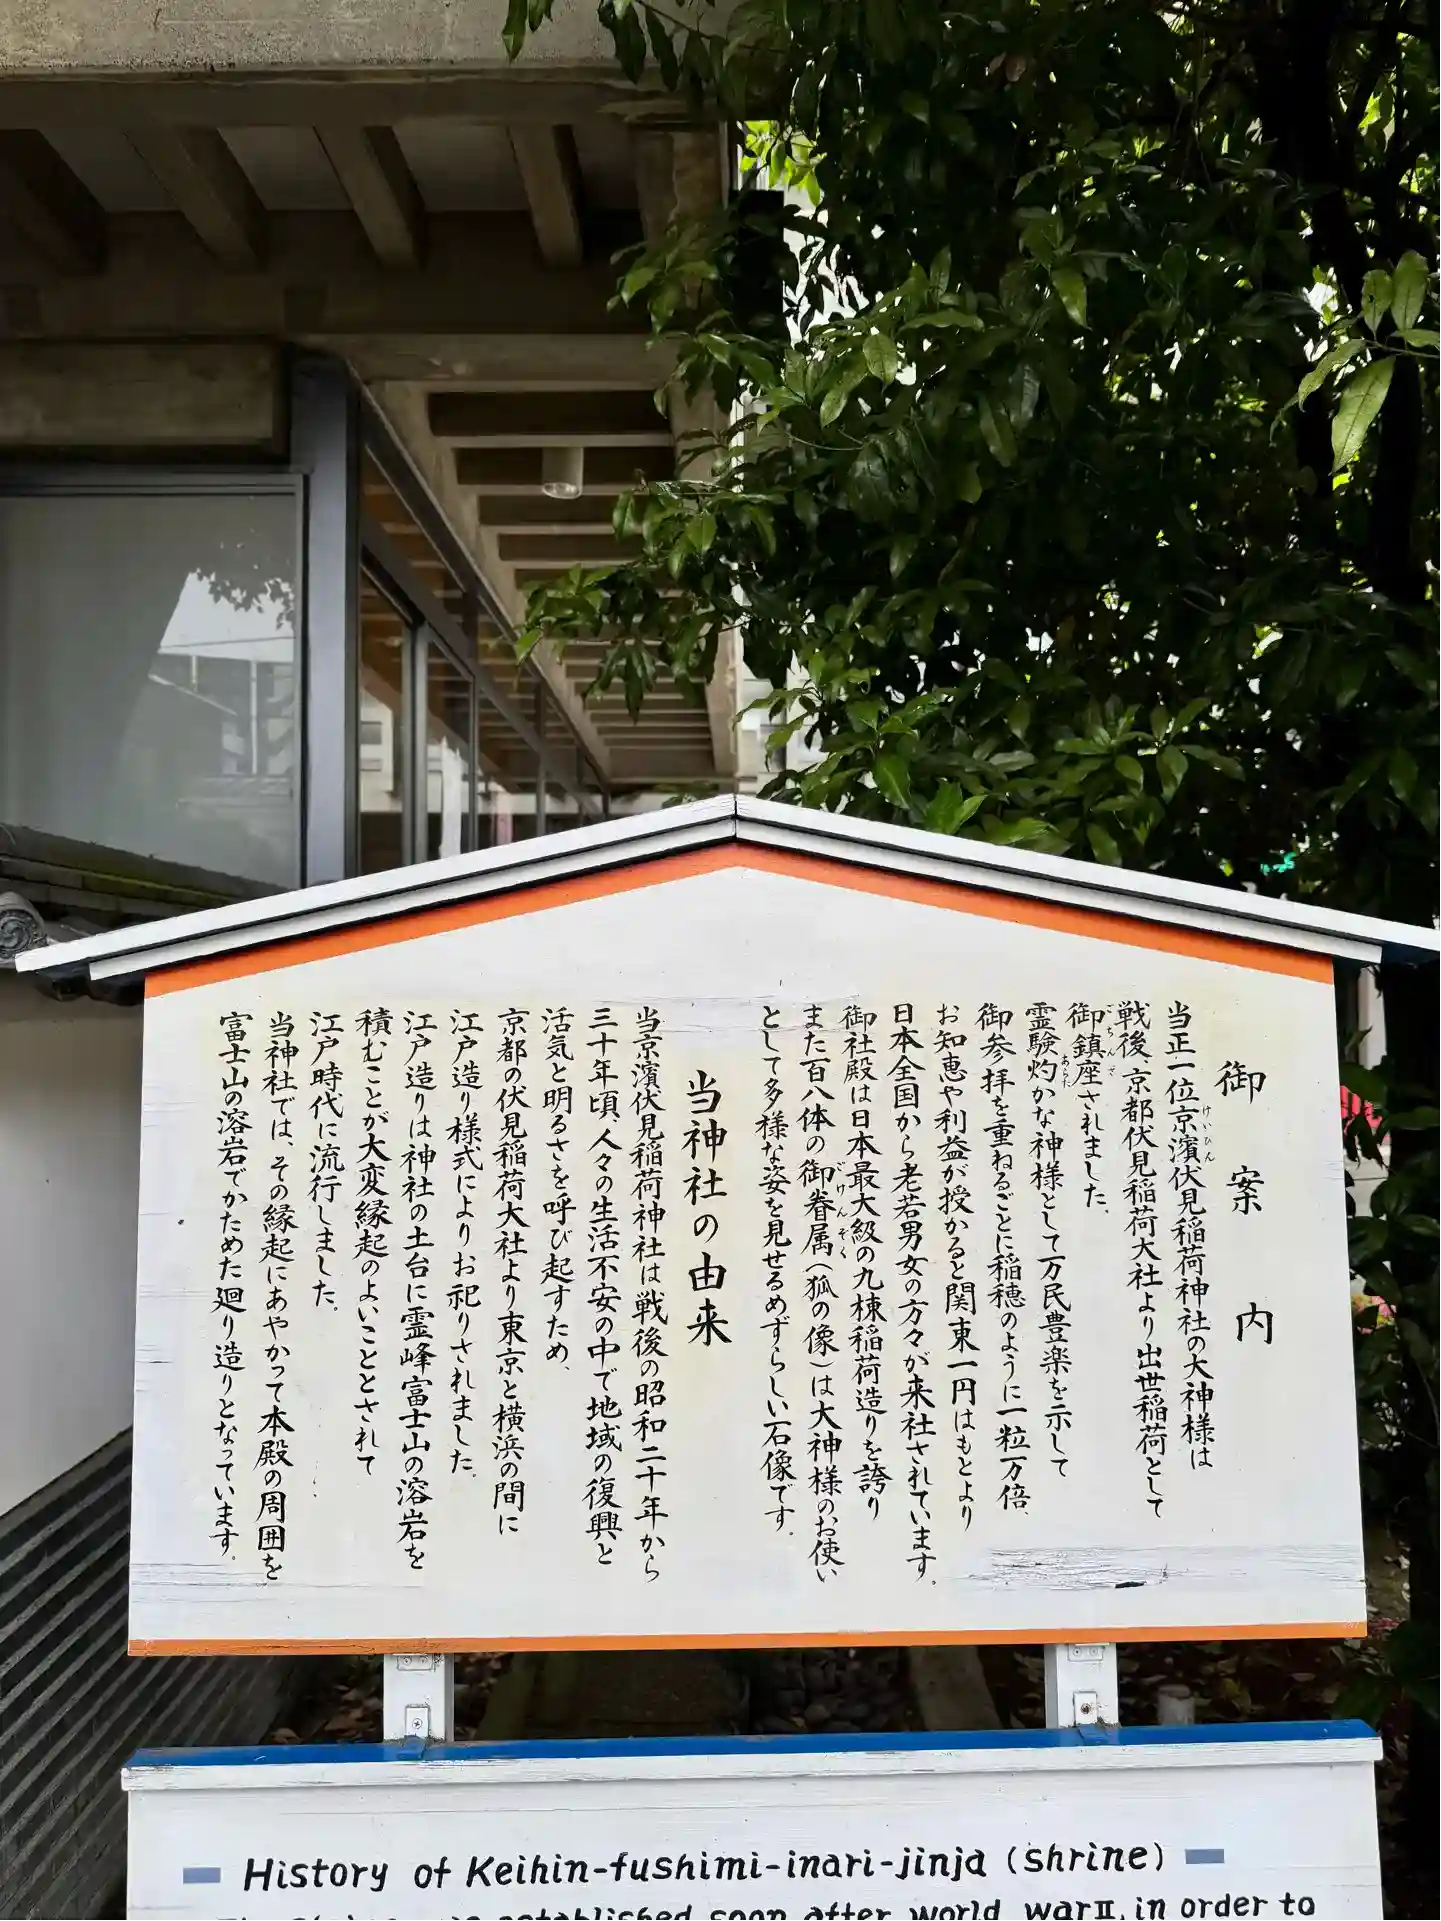 御案内
当正一位京濱伏見稲荷神社の大神様は
けいひん
戦後、京都伏見稲荷大社より出世稲荷として
御鎮座されました。
ごちんざ
霊験灼かな神様として万民豊楽を示して
あらた
御参拝を重ねるごとに稲穂のように一粒万倍、
お知恵や利益が授かると関東一円はもとより
日本全国から老若男女の方々が来社されています。
御社殿は日本最大級の九棟稲荷造りを誇り
また百八体の御眷属(狐の像)は大神様のお使い
ごけんぞく
として多様な姿を見せるめずらしい石像です。
当神社の由来
当京濱伏見稲荷神社は戦後の昭和二十年から
三十年頃、人々の生活不安の中で地域の復興と
活気と明るさを呼び起すため、
京都の伏見稲荷大社より東京と横浜の間に
江戸造り様式によりお祀りされました。
江戸造りは神社の土台に霊峰富士山の溶岩を
積むことが大変縁起のよいこととされて
江戸時代に流行しました。
当神社では、その縁起にあやかって本殿の周囲を
富士山の溶岩でかためた廻り造りとなっています。
History of Keihin-fushimi-inari-jinja (shrine)
established soon after world war II, in order to